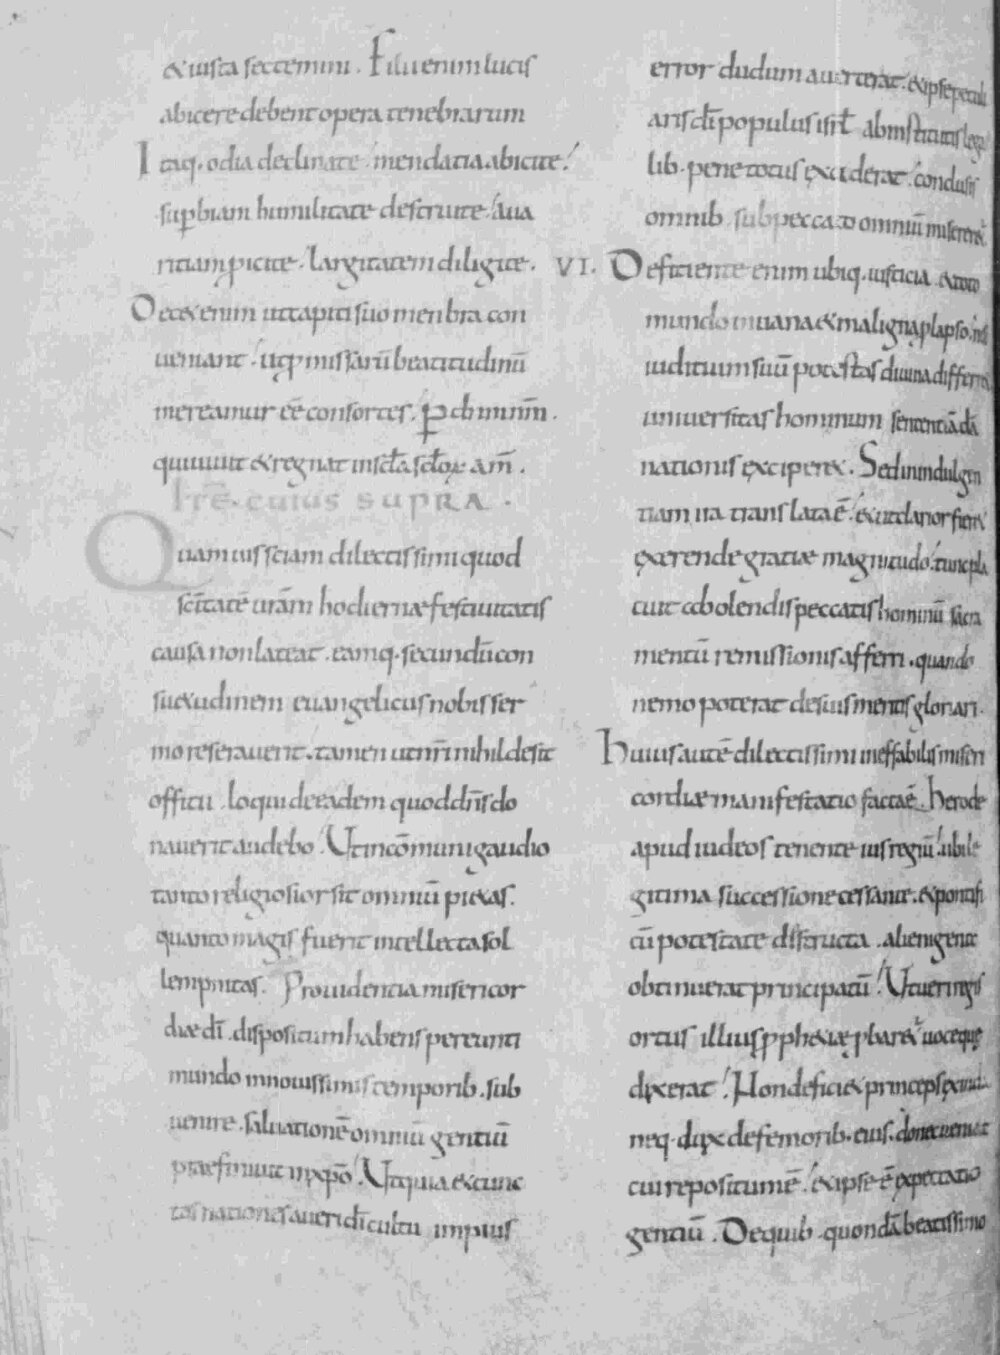 & iusta sectemini. Filii enim lucis
abicere debent opera tenebrarum
Itaq. odia declinate. mendatia abicite.
supbiam humilitate destruite. aua
ritiam picite. largitatem diligite.
Decet enim ut capiti suo menbra con
ueniant. ut pmissarū beatitudinū
mereamur eē consortes. P dnm nrm̄.
qui uiuit & regnat in scła scłoꝝ am̄.
ITĒ. CUIUS SUPRA.
Quamuis sciam dilectissimi quod
sc̄itatē urām hodiernæ festiuitatis
causa non lateat. eamq. secundū con
su&udinem euangelicus nobis ser
mo reserauerit. tamen ut nr̄i nihil desit
officii. loqui de eadem quod dn̄s do
nauerit audebo. Ut in cōmuni gaudio
tanto religiosior sit omniū pi&as.
quanto magis fuerit intellecta sol
lempnitas. Prouidentia misericor
diæ dī. dispositum habens pereunti
mundo in nouissimis temporib. sub
uenire. saluationē omniū gentiū
praefiniuit in xp̄o. Ut quia & cunc
tas nationes a ueri dī cultu impius
error dudum auerterat. & ipse peculi
aris dī populus isrł ab institutis lega
lib. pene totus exciderat. conclusis
omnib. sub peccato omniū misereret̃
VI. Deficiente enim ubiq. iusticia. & toto
mundo in uana & maligna plapso. nisi
iuditium suū potestas diuina differret
uniuersitas hominum sententiā dā
nationis exciper&. Sed in indulgen
tiam ira translata ē. & ut clarior fier&
exerende gratiæ magnitudo. tunc pla
cuit abolendis peccatis hominū sacra
mentū remissionis afferri. quando
nemo poterat de suis meritis gloriari.
Huius autē dilectissimi ineffabilis miseri
cordiæ manifestatio facta ē. herode
apud iudeos tenente ius regiū. ubi le
gitima successione cessante. & pontifi
cū potestate distructa. alienigena
obtinuerat principatū. Ut ueri regis
ortus illius pph&iæ pbaret̃ uoce quę
dixerat. Non defici& princeps ex iuda
neq. dux de femorib. eius. donec ueniat
cui repositum ē. & ipse ē expectatio
gentiū. De quib. quondā beatissimo